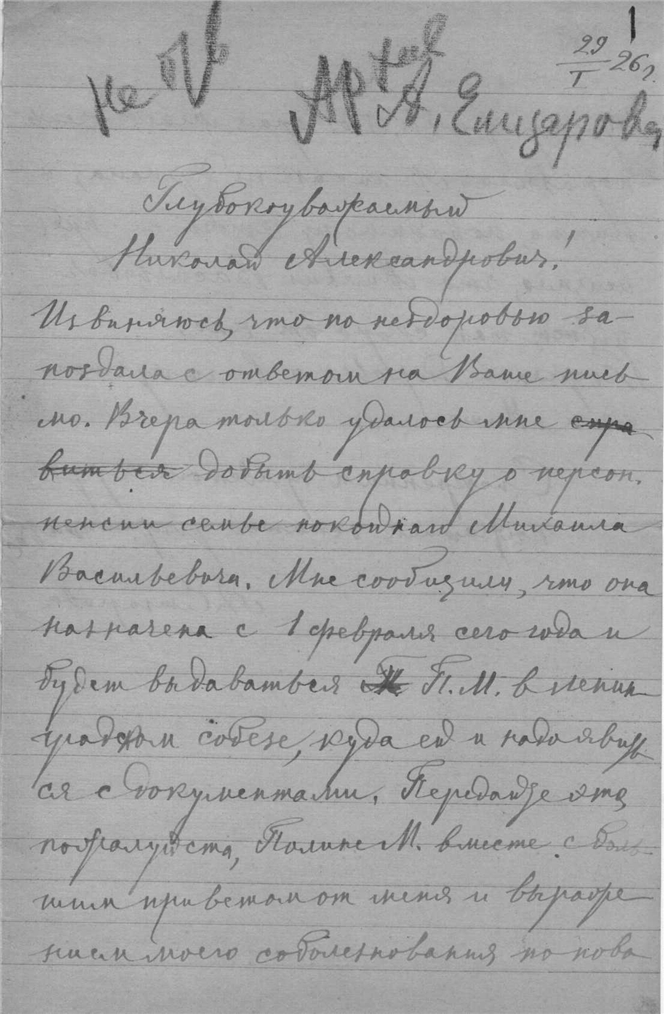 1
29/I 26 г.
не
Архив
А. Емцарова
Глубокоуважаемый
Николай Александрович!
Извиняюсь, что по нездоровью за-
поздала с ответом на Ваше пись-
мо. Вчера только удалось мне спра
виться добыть справку о персон.
пенсии семье покойнаго Михаила
Васильевича. Мне сообщили, что она
назначена с 1 февраля сего года и
будет выдаваться П.М. в Ленин
градском Собезе, куда ей и надо явить
ся с документами. Передайте это,
пожалуйста, Полине М. вместе с боль-
шим приветом от меня и выраже
нием моего соболезнования по пово